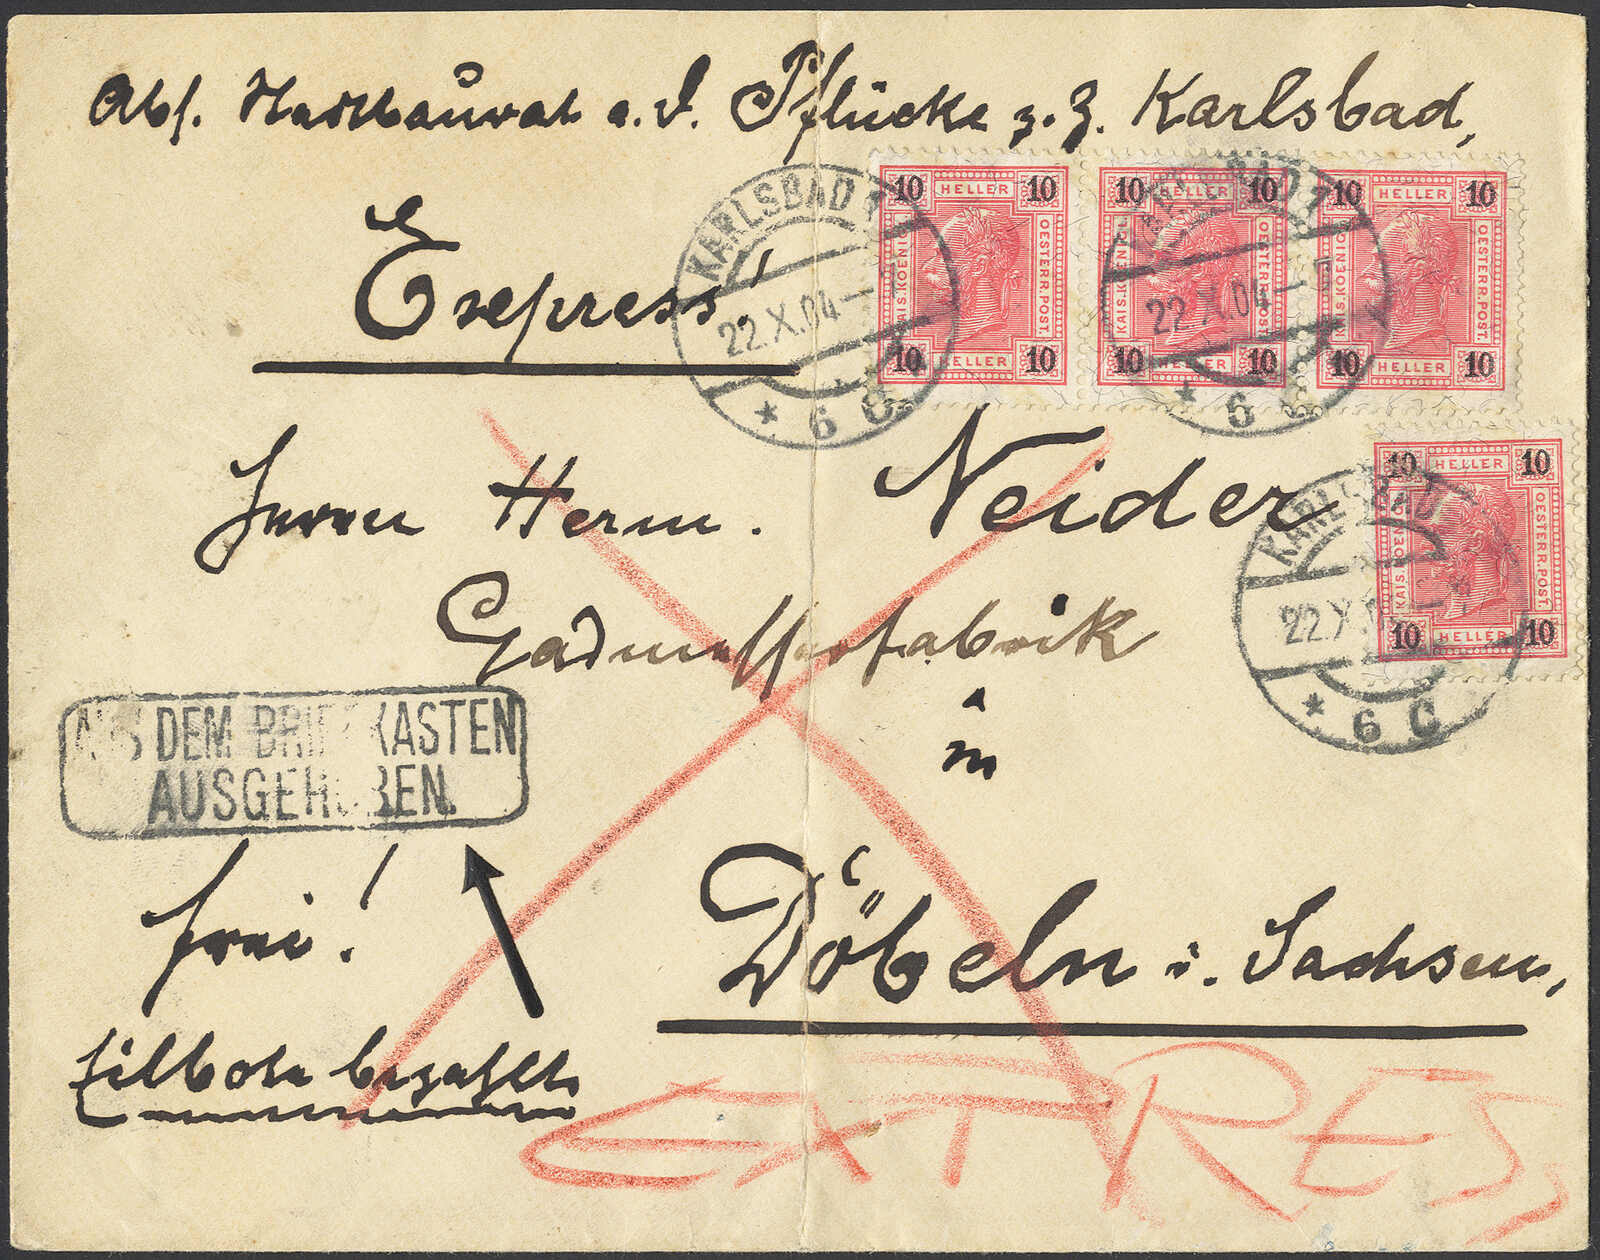 Abs. Stadtbaurat a. D. Pflücke z. Z. Karlsbad,
Express!
KARLSBAD 1
22.X.04
* 6 C
10 HELLER 10
KAIS. KOENIGL.
OESTERR. POST.
10 HELLER 10
KARLSBAD 1
22.X.04
* 6
10 HELLER 10
KAIS. KOENIGL.
OESTERR. POST.
10 HELLER 10
10 HELLER 10
KAIS. KOENIGL.
OESTERR. POST.
10 HELLER 10
KARLSBAD
22.X.
* 6 C
10 HELLER 10
KAIS. KOENIGL.
OESTERR. POST.
10 HELLER 10
Herrn Herm. Neider
Gasmesserfabrik
in
AUS DEM BRIEFKASTEN
AUSGEHOBEN.
frei!
Döbeln i. Sachsen,
Eilbote bezahlt
EXPRESS